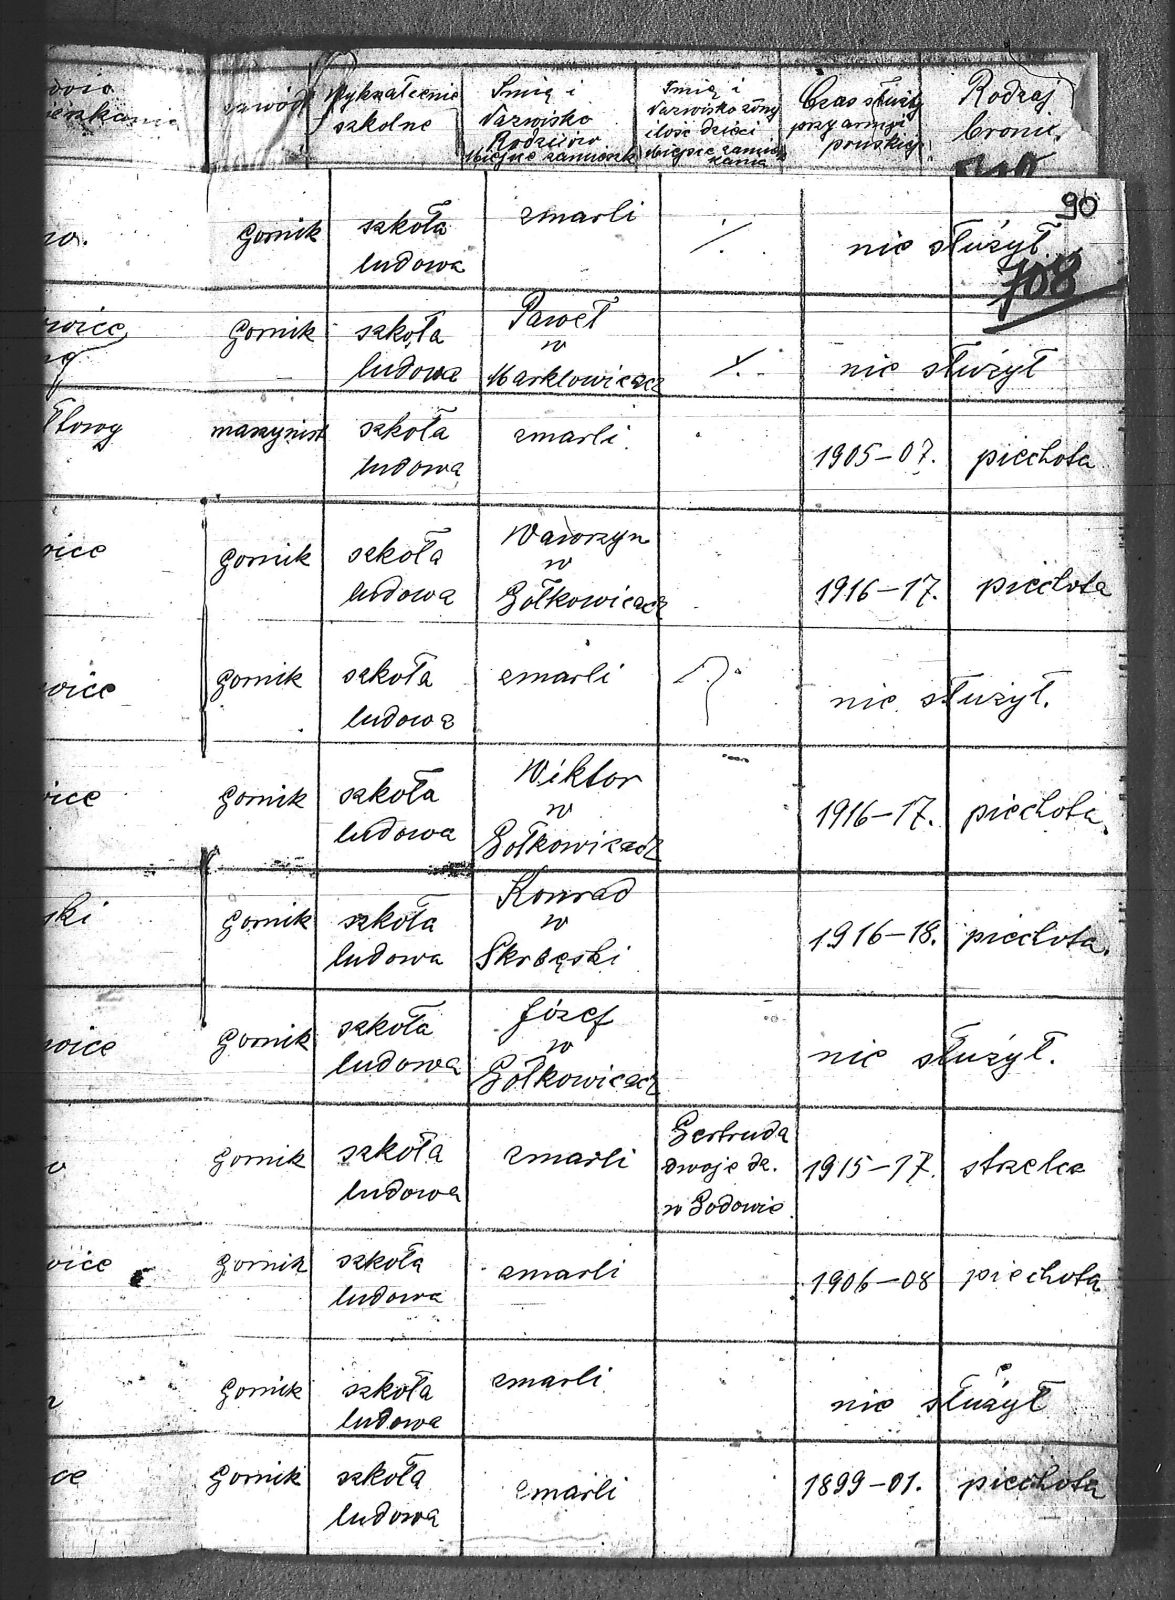 zawód
Wykształcenie
szkolne
Imię i
Nazwisko
Rodziców
Miejsce zamieszk
Imię i
Nazwisko żony
ilość dzieci
Miejsce zamiesz
kania
Czas służby
przy armji
pruskiej
Rodzaj
broni.
90
708
Gornik
szkoła
ludowa
zmarli
nie służył
Gornik
szkoła
ludowa
Paweł
w
Marklowicach
nie służył
maszynist
szkoła
ludowa
zmarli
1905-07.
piechota
wice
Gornik
szkoła
ludowa
Wawrzyn
w
Gołkowicach
1916-17.
piechota
wice
Gornik
szkoła
ludowa
zmarli
nie służył.
wice
Gornik
szkoła
ludowa
Wiktor
w
Gołkowicach
1916-17.
piechota.
ski
Gornik
szkoła
ludowa
Konrad
w
Skrbęski
1916-18.
piechota.
wice
Gornik
szkoła
ludowa
Józef
w
Gołkowicach
nie służył.
Gornik
szkoła
ludowa
zmarli
Gertruda
dwoje dz.
w Godowie
1915-17.
strzelec
wice
Gornik
szkoła
ludowa
zmarli
1906-08
piechota
Gornik
szkoła
ludowa
zmarli
nie służył
ce
Gornik
szkoła
ludowa
zmarli
1899-01.
piechota